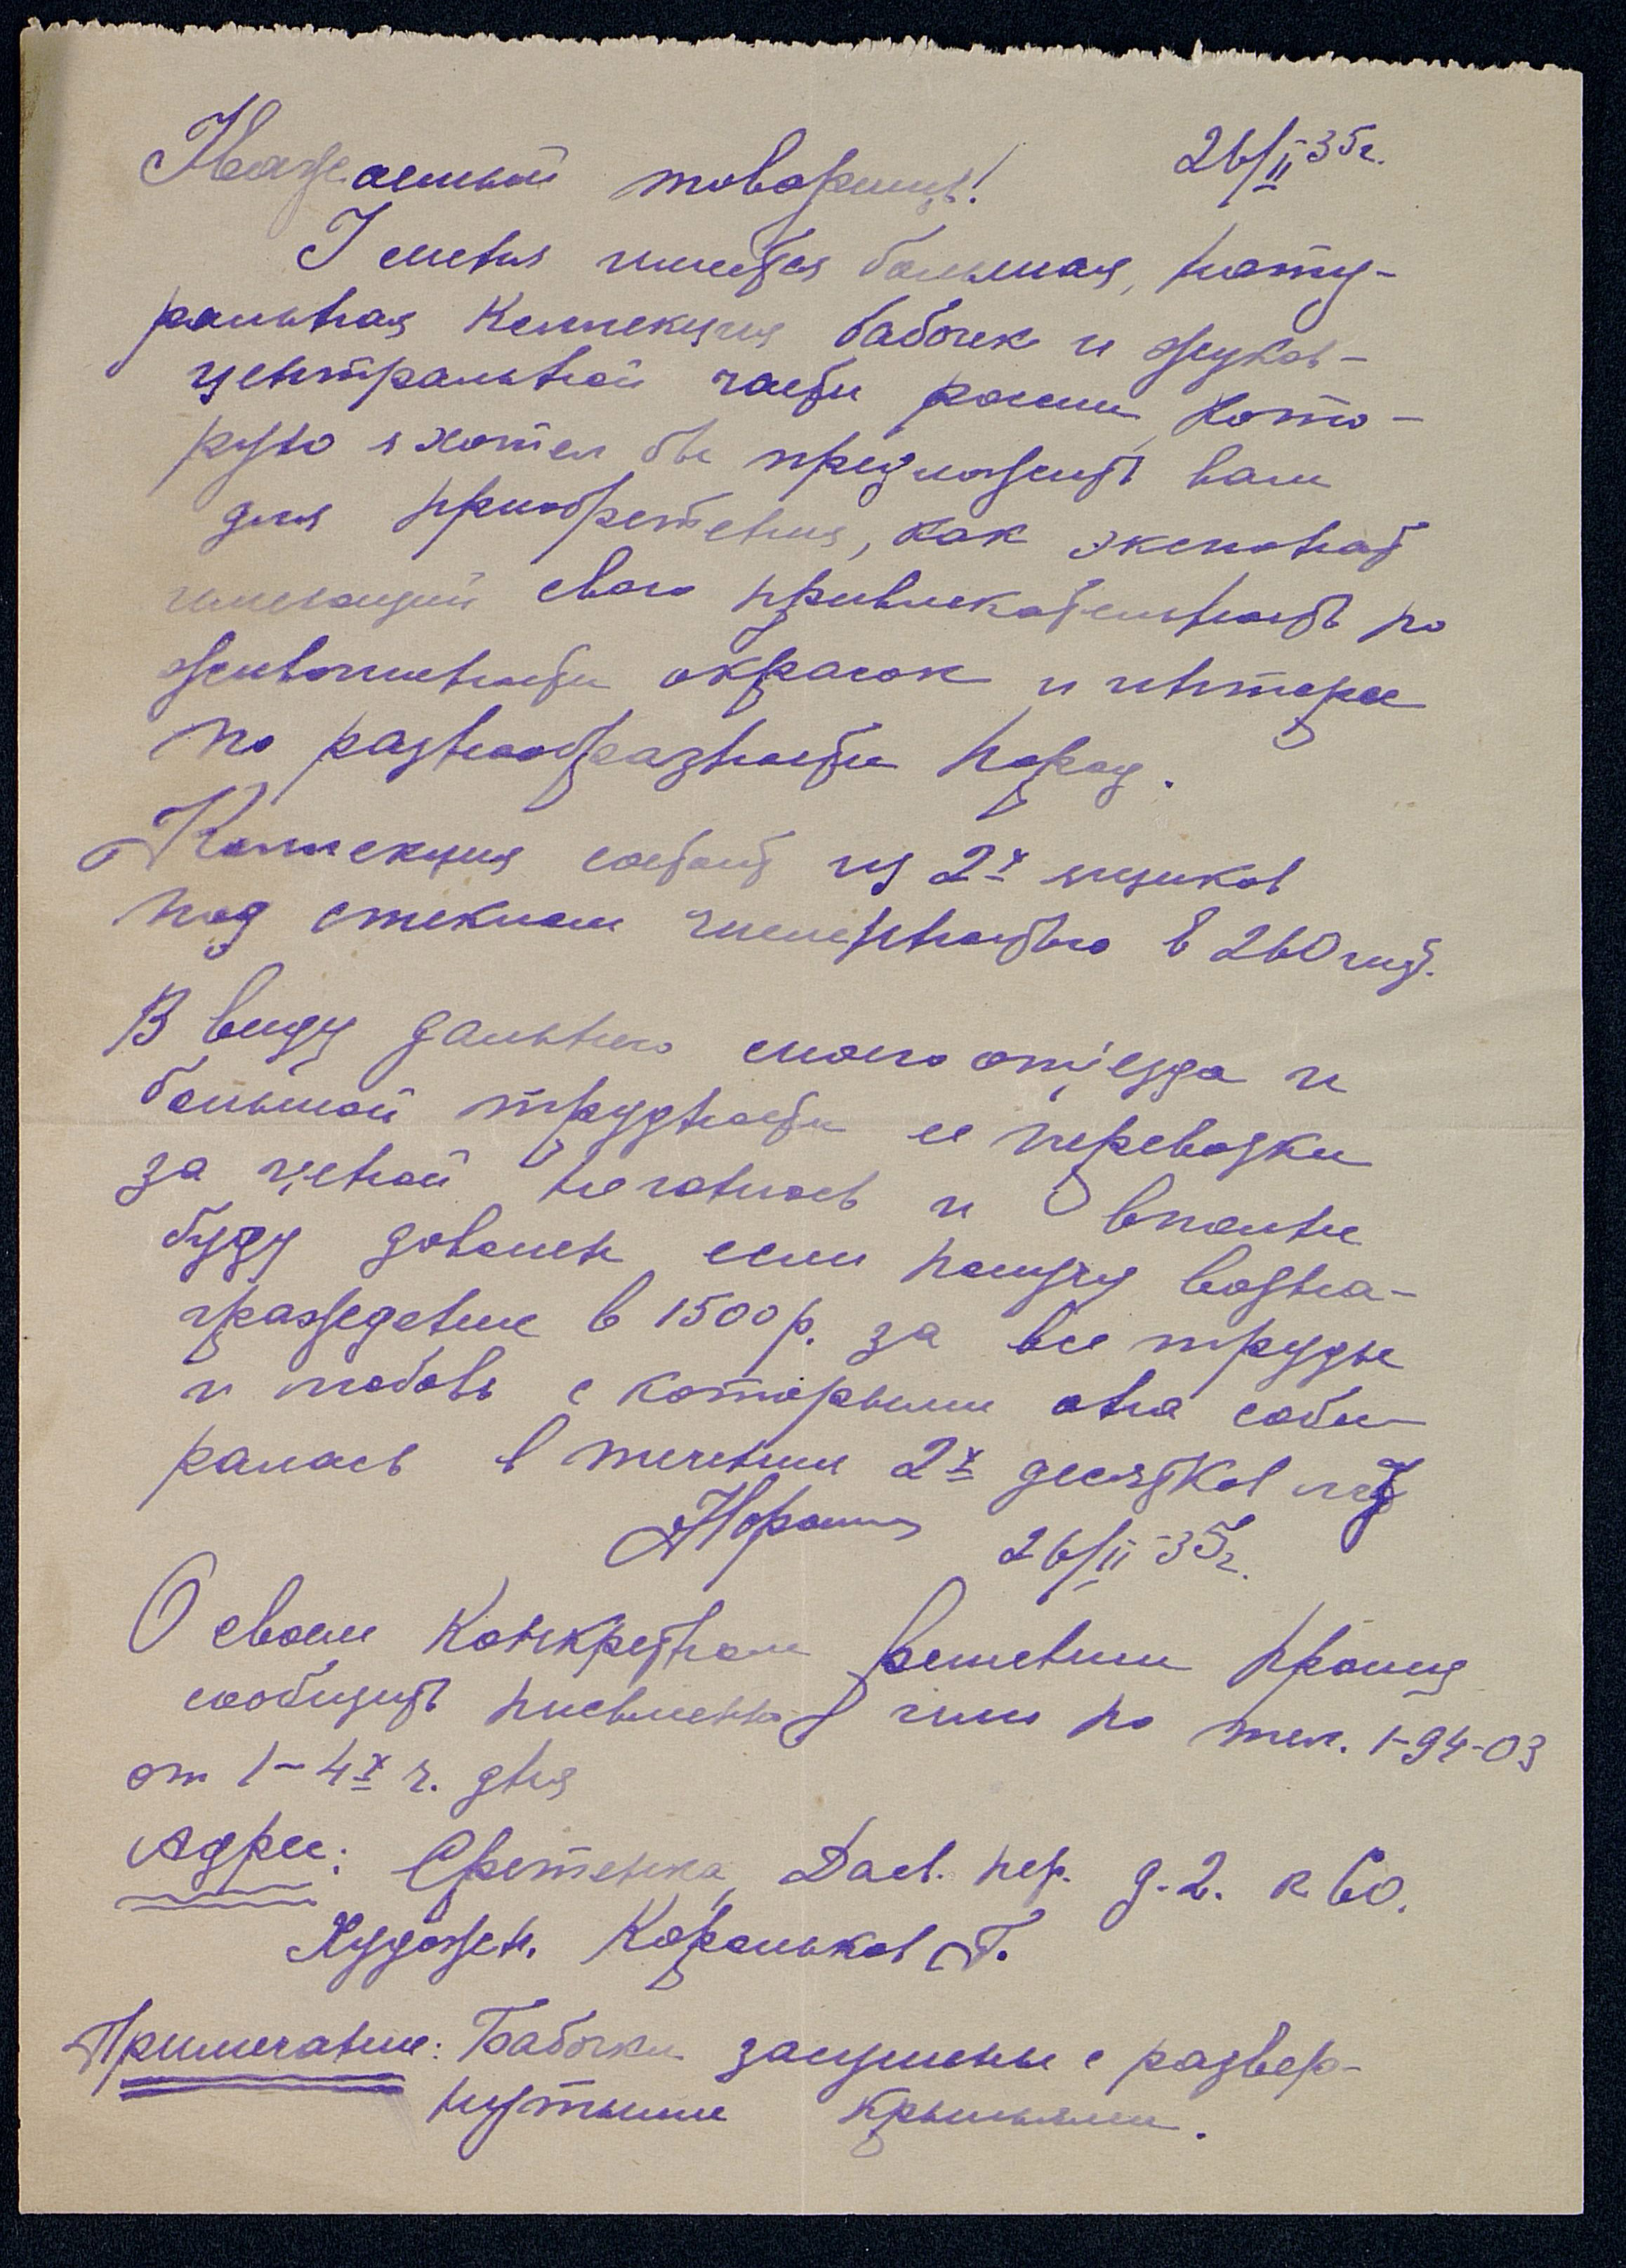 Уважаемый товарищ! 26/II-35г.
У меня имеется большая, нату-
ральная коллекция бабочек и жуков -
центральной части россии, кото-
рую я хотел бы предложить вам
для приобретения, как экспонат
имеющий свою привлекательность по
живописности окрасок и интерес
по разнообразности пород.
Коллекция состоит из 2х ящиков
под стеклом численностью в 260 шт.
В виду дальнего моего отъезда и
большой трудности ее перевозки
за ценой не гонюсь и вполне
буду доволен если получу возна-
граждение в 1500 р. за все труды
и любовь с которыми она соби
ралась в течении 2х десятков лет
26/II-35г.
О своем конкретном решении прошу
сообщить письменно или по тел. 1-94-03
от 1-4х ч. дня
Адрес: Сретенка, Даев. пер. д. 2. к 60.
Художн. Корольков Г.
Примечание: Бабочки засушены с развер-
нутыми крыльями.